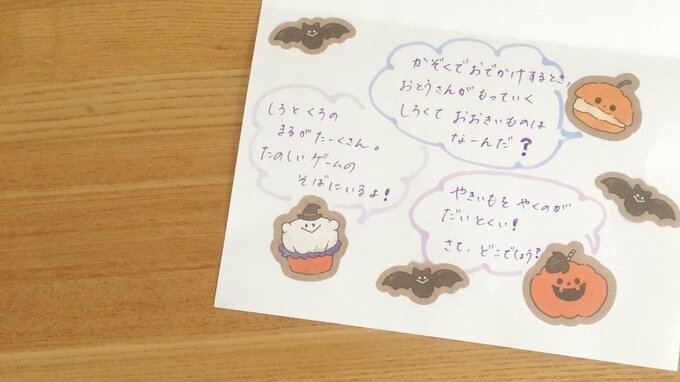 かぞくでおでかけするとき、
おとうさんがもっていく
しろくておおきいものは
なーんだ?
しろとくろの
まるがたーくさん。
たのしいゲームの
そばにいるよ!
やきいもをやくのが
だいとくい!
さて、どこでしょう?